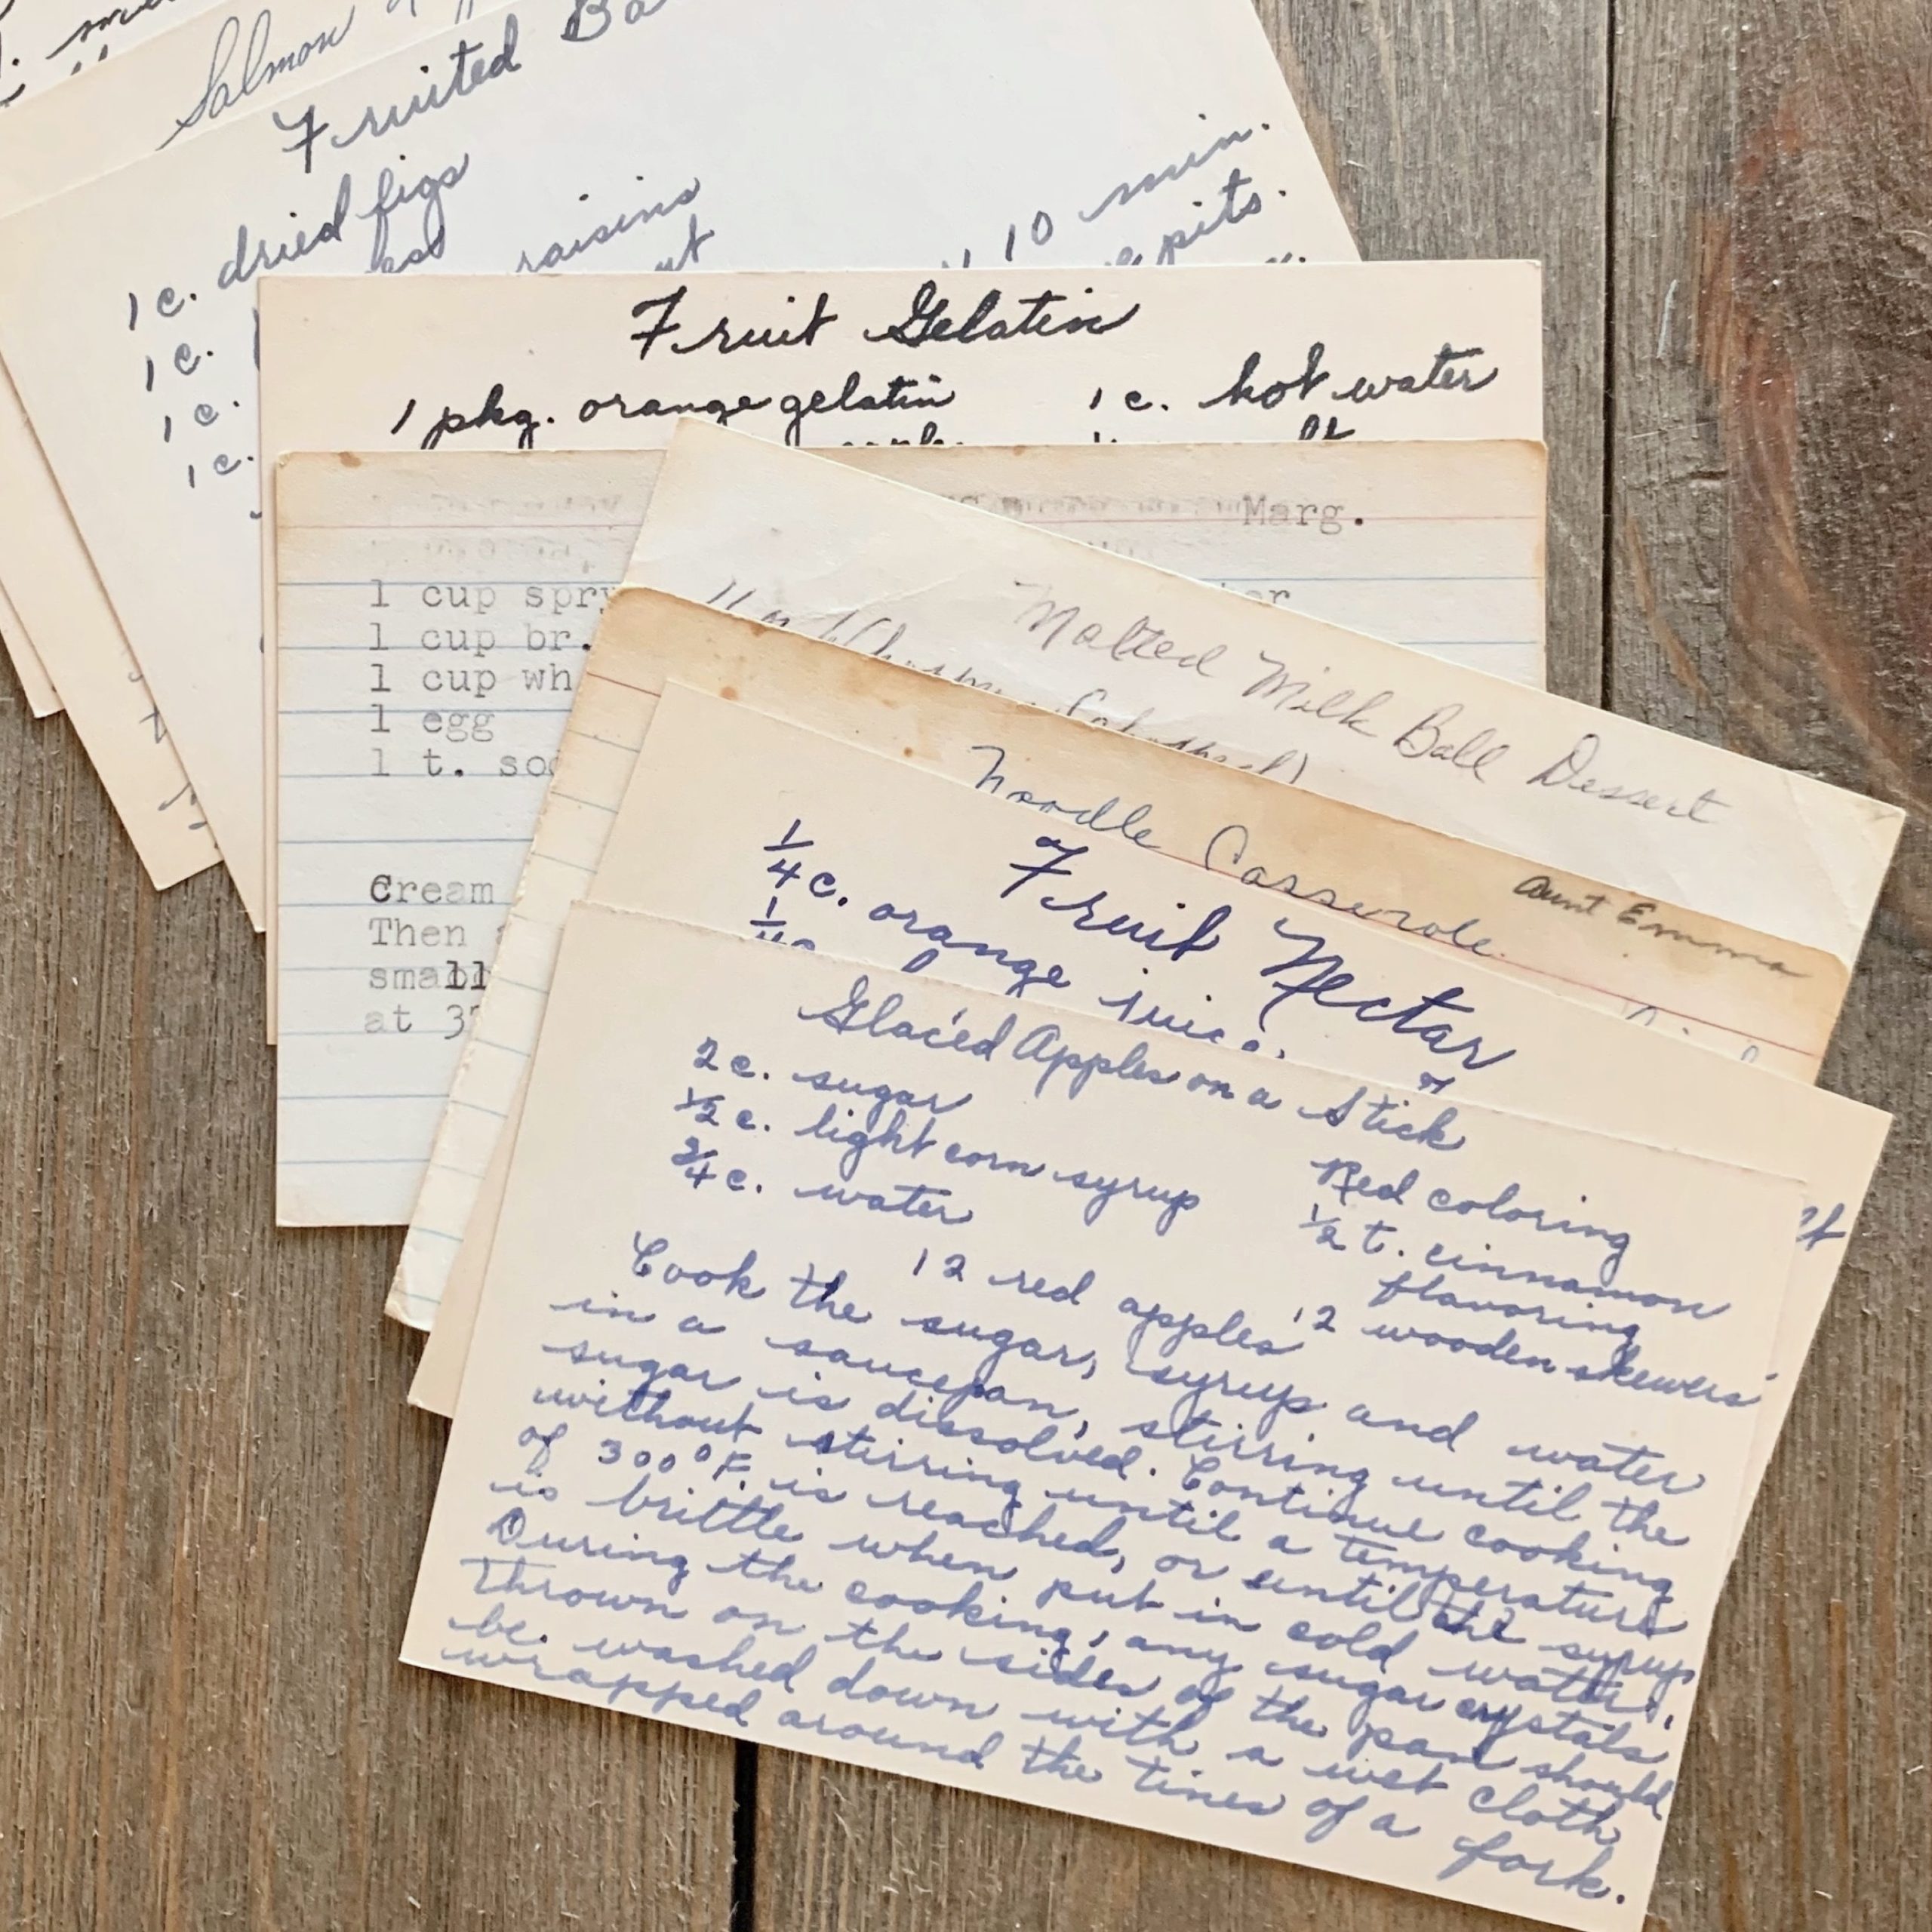 Salmon
Fruited
1 c. dried figs
raisins
1 c.
1 c.
1 c.
10 min.
pits.
Fruit Gelatin
1 pkg. orange gelatin 1 c. hot water
Marg.
1 cup spry
1 cup br.
1 cup wh
1 egg
1 t. so
Cream
Then
small
at 3
Malted Milk Ball Dessert
Noodle Casserole
Aunt Emma
Fruit Nectar
1/4 c. orange juice
Glacéd Apples on a Stick
2 c. sugar Red coloring
1/2 c. light corn syrup 1/2 t. cinnamon
3/4 c. water flavoring
12 red apples 12 wooden skewers
Cook the sugar, syrup and water
in a saucepan, stirring until the
sugar is dissolved. Continue cooking
without stirring until a temperature
of 300°F. is reached, or until the syrup
is brittle when put in cold water.
During the cooking, any sugar crystals
thrown on the sides of the pan should
be washed down with a wet cloth
wrapped around the tines of a fork.